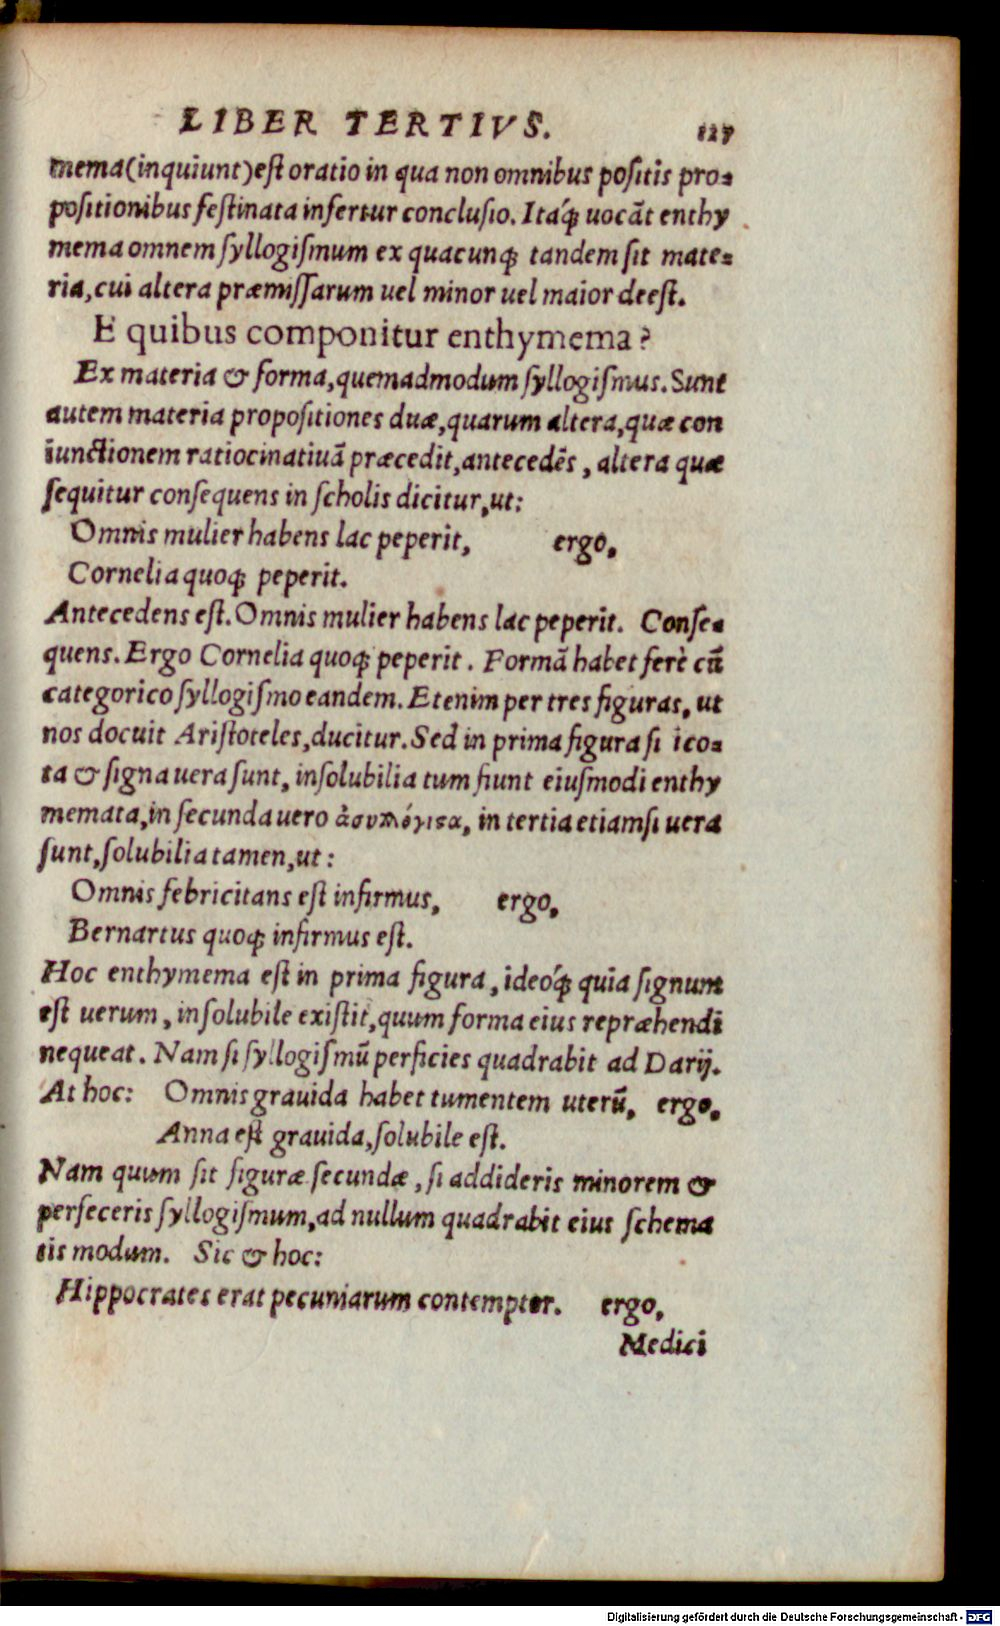 LIBER TERTIVS. 127
mema(inquiunt)eſt oratio in qua non omnibus poſitis pro-
poſitionibus feſtinata infertur concluſio. Itaq́; uocāt enthy
mema omnem ſyllogiſmum ex quacunq; tandem ſit mate-
ria, cui altera præmiſſarum uel minor uel maior deeſt.
E quibus componitur enthymema?
Ex materia & forma, quemadmodum ſyllogiſmus. Sunt
autem materia propoſitiones duæ, quarum altera, quæ con
iunctionem ratiocinatiuā præcedit, antecedēs, altera quæ
ſequitur conſequens in ſcholis dicitur, ut:
Omnis mulier habens lac peperit, ergo,
Cornelia quoq; peperit.
Antecedens eſt. Omnis mulier habens lac peperit. Conſe-
quens. Ergo Cornelia quoq; peperit. Formā habet ferè cū
categorico ſyllogiſmo eandem. Etenim per tres figuras, ut
nos docuit Ariſtoteles, ducitur. Sed in prima figura ſi ico-
ta & ſigna uera ſunt, inſolubilia tum fiunt eiuſmodi enthy
memata, in ſecunda uero ἀσυλλόγιστα, in tertia etiamſi uera
ſunt, ſolubilia tamen, ut:
Omnis febricitans eſt infirmus, ergo,
Bernartus quoq; infirmus eſt.
Hoc enthymema eſt in prima figura, ideoq́; quia ſignum
eſt uerum, inſolubile exiſtit, quum forma eius repræhendi
nequeat. Nam ſi ſyllogiſmū perficies quadrabit ad Darij.
At hoc: Omnis grauida habet tumentem uterū, ergo,
Anna eſt grauida, ſolubile eſt.
Nam quum ſit figuræ ſecundæ, ſi addideris minorem &
perfeceris ſyllogiſmum, ad nullum quadrabit eius ſchema
tis modum. Sic & hoc:
Hippocrates erat pecuniarum contemptor. ergo,
Medici
Digitalisierung gefördert durch die Deutsche Forschungsgemeinschaft - DFG